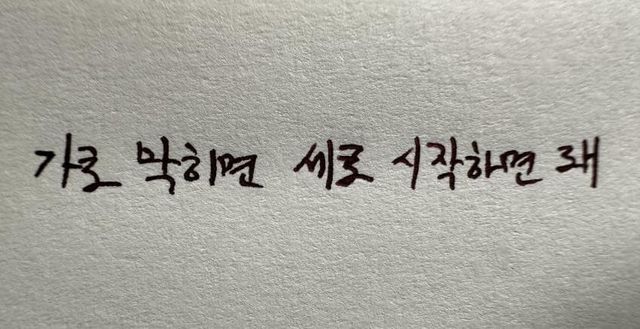 가로 막히면 세로 시작하면 돼